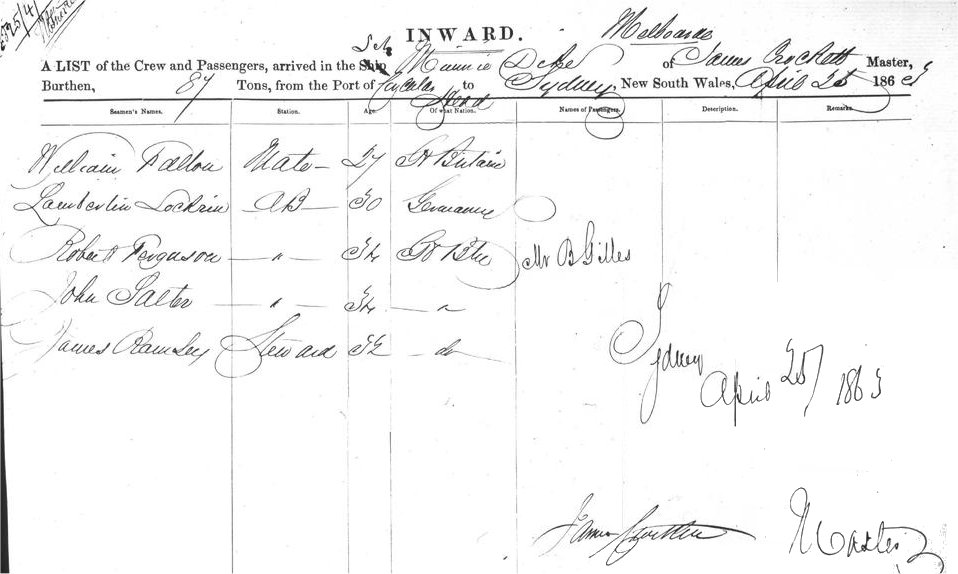 INWARD.
A LIST of the Crew and Passengers, arrived in the Ship Minnie Dyke of Melbourne James Crockett Master,
Burthen, 87 Tons, from the Port of to Sydney, New South Wales, April 25 1863
Seamen's Names. Station. Age. Of what Nation. Names of Passengers. Description. Remarks.
William Fallon Mate 27 Gt Britain
Lochrin AB 30 Germany
Robert Ferguson — " — 34 Gt Btn Mr B Gilles
John Salter — " — 34 — " —
James Ramsey Steward 32 — do
Sydney
April 25/ 1863
James Crockett Master